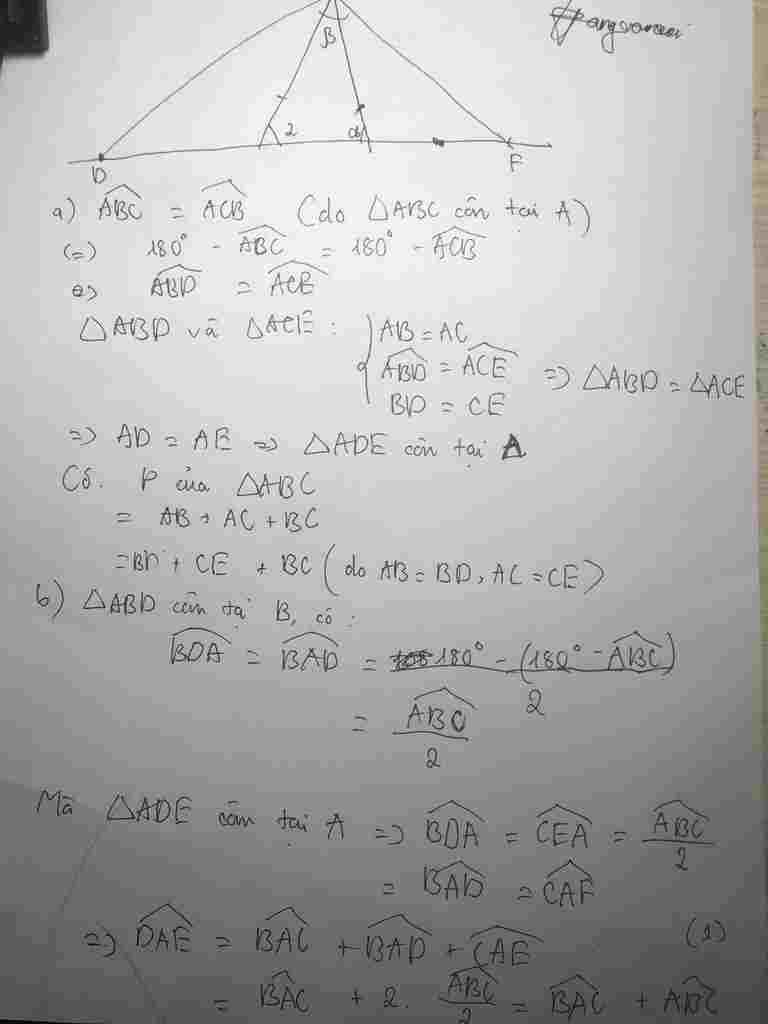 B
2
D
F
a) ABC = ACB (do △ABC cân tại A)
(=) 180° - ABC = 180° - ACB
ABD = ACE
△ABD và △ACE : { AB = AC
ABD = ACE => △ABD = △ACE
BD = CE
=> AD = AE => △ADE cân tại A
Có. P của △ABC
= AB + AC + BC
= BD + CE + BC (do AB = BD, AC = CE)
b) △ABD cân tại B, có :
BDA = BAD = 180° - (180° - ABC) / 2
= ABC / 2
Mà △ADE cân tại A => BDA = CEA = ABC / 2
= BAD = CAE
=> DAE = BAC + BAD + CAE (1)
= BAC + 2. ABC / 2 = BAC + ABC